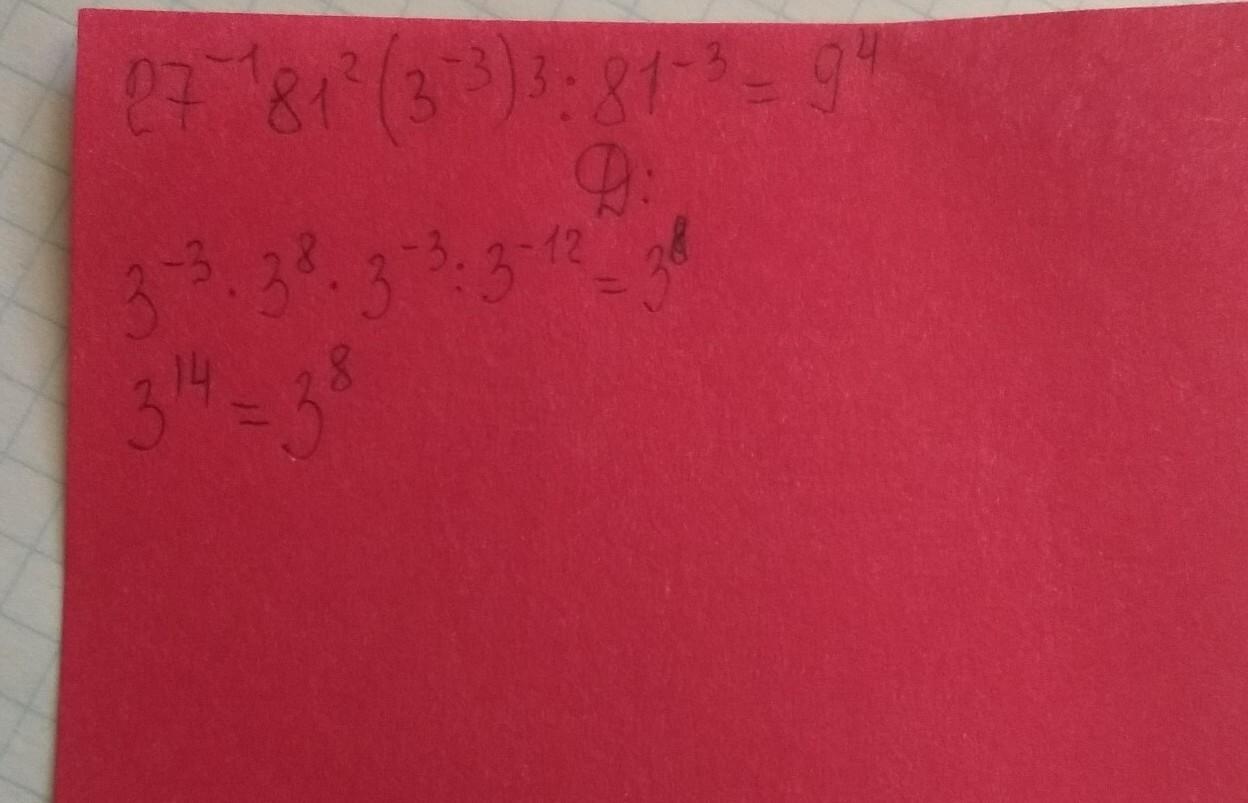 27⁻¹ 81² (3⁻³)³ : 81⁻³ = 9⁴
Д:
3⁻³ · 3⁸ · 3⁻³ : 3⁻¹² = 3⁸
3¹⁴ = 3⁸